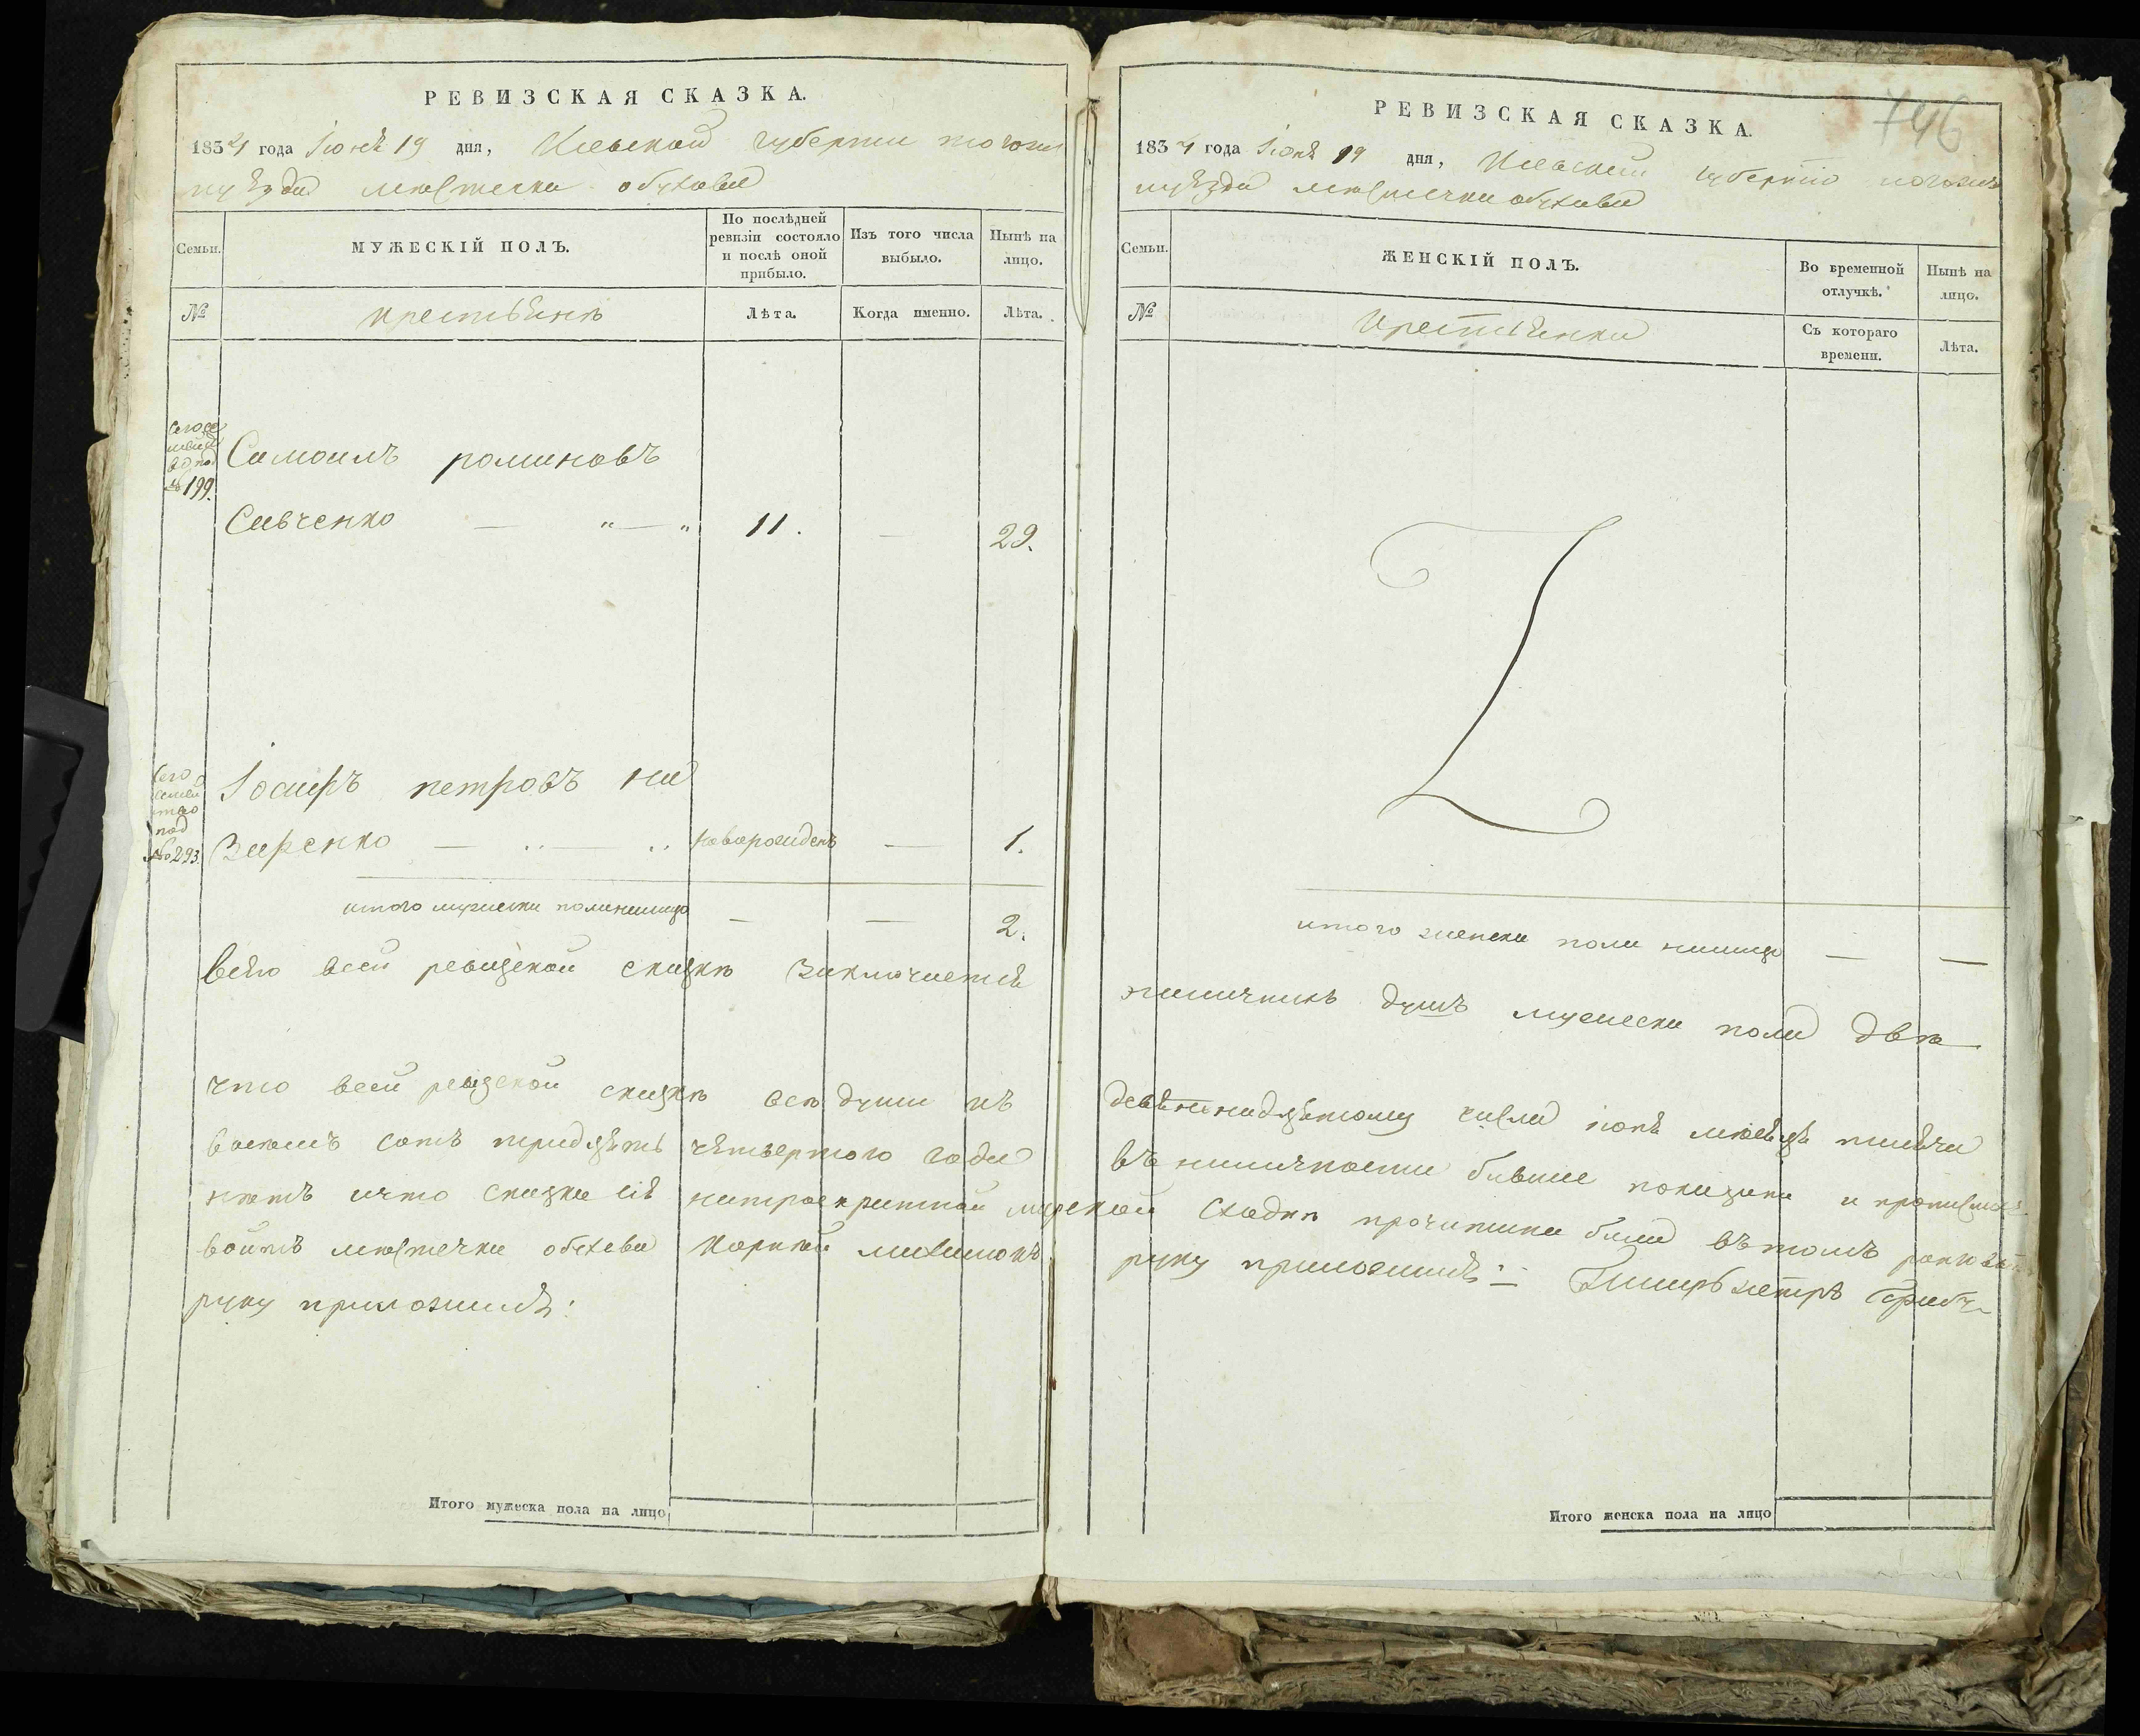 РЕВИЗСКАЯ СКАЗКА.
1834 года Июня 19 дня, Киевской губернии
уезда местечка обухова
Семьи.
МУЖЕСКІЙ ПОЛЪ.
По послѣдней ревизіи состояло и послѣ оной прибыло.
Изъ того числа выбыло.
Нынѣ на лицо.
№
крестьяне
Лѣта.
Когда именно.
Лѣта.
№ 199.
Самоилъ романовъ
Савченко — „ — „ 11. — 29.
его
семей
ство
под
№ 293.
Іосифъ петровъ на
заренко — новорожденъ — 1.
итого мужеска пола налицо — — 2.
всего всей ревизской сказкѣ заключается
что всей ревизской сказкѣ всѣ души къ
восемъ сотъ тридцять четвертого года
что сказка сія
войтъ местечка обухова
руку приложилъ:
Итого мужеска пола на лицо
РЕВИЗСКАЯ СКАЗКА.
746
1834 года Июня 19 дня, Киевской губерніи
уезда местечка обухова
Семьи.
ЖЕНСКІЙ ПОЛЪ.
Во временной отлучкѣ.
Нынѣ на лицо.
№
крестьянки
Съ котораго времени.
Лѣта.
итого женска пола налицо — —
душъ мужеска пола двѣ
девятнадцятому числа июня месяця тисяча
въ наличности бывшие показаны и
сходкѣ прочитана была въ томъ
руку приложилъ:
Итого женска пола на лицо